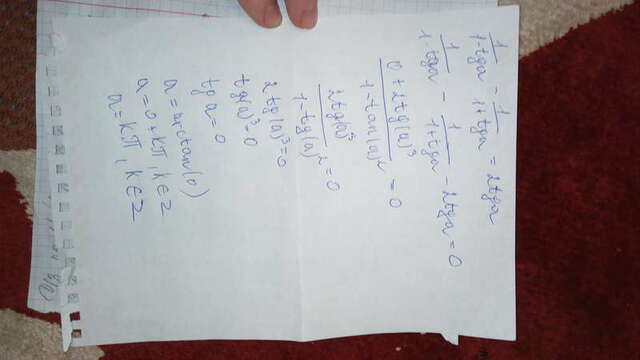 1/(1-tga) - 1/(1+tga) = 2tga
1/(1-tga) - 1/(1+tga) - 2tga = 0
(0+2tg(a)³)/(1-tan(a)²) = 0
2tg(a)³/(1-tg(a)²) = 0
2tg(a)³=0
tg(a)³=0
tg a=0
a = arctan(0)
a = 0+kπ, k∈Z
a = kπ, k∈Z